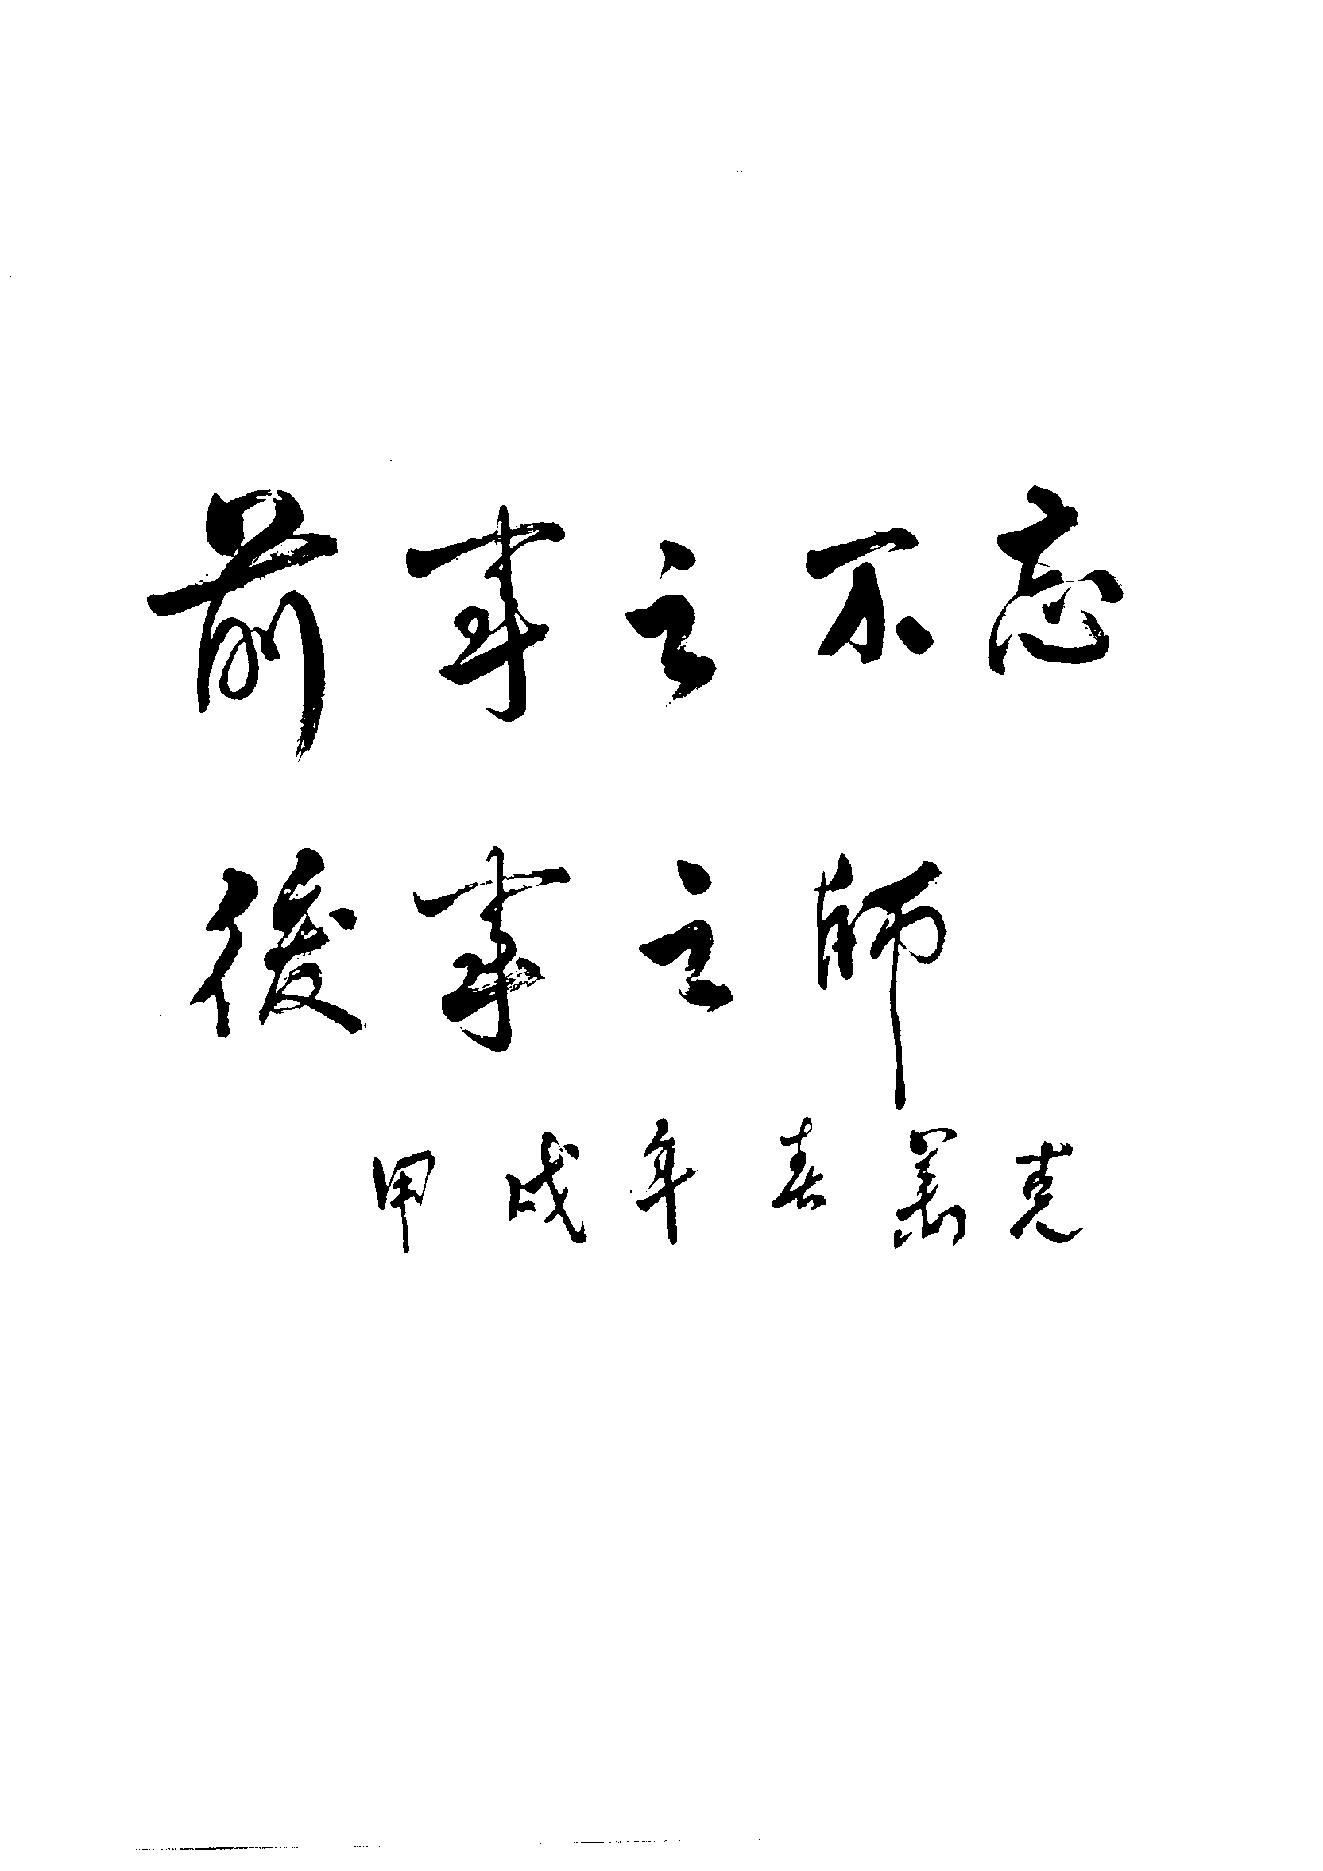 前事之不忘
後事之师
甲戌年春 克